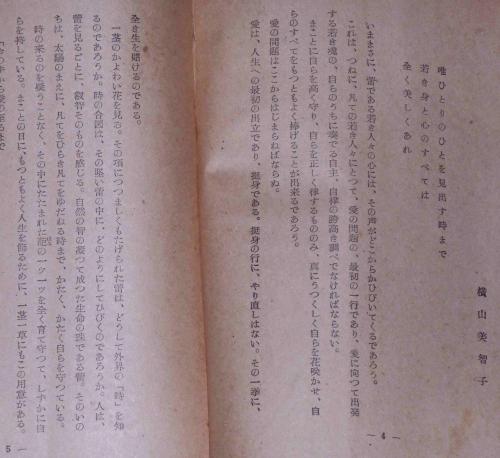 唯ひとりのひとを見出す時まで
若き身と心のすべては
全く美しくあれ
横山美智子
いままさに、蕾である若き人々の心には、その声がどこからかひびいてくるであろう。
これは、つねに、凡ての若き人々にとつて、愛の問題の、最初の一行であり、愛に向つて出発
する若き魂の、自らのうちに奏でる自主、自律の誇高き調べでなければならない。
まことに自らを高く守り、自らを正しく律するもののみ、真にうつくしく自らを花咲かせ、自
らのすべてをもつともよく捧げることが出来るであろう。
愛の問題はここからはじまらねばならぬ。
愛は、人生への最初の出立であり、挺身である。挺身の行に、やり直しはない。その一挙に、
― 4 ―
全き生を賭けるのである。
一茎のかよわい花を見る。その項につつましくもたげられた蕾は、どうして外界の「時」を知
るのであろうか。時の合図は、その堅い蕾の中に、どのようにしてひびくのであろうか。人は、
蕾を見るごとに、叡智そのものを感じる。自然の智の凝つて成つた生命の珠である蕾。そのいの
ちは、太陽のまえに、凡てをひらき凡てをゆだねる時まで、かたく、かたく自らを守つている。
時の来るのを疑うことなく、その中にたたまれた葩の一ク一ツを全く育て守つて、しずかに自
らを持している。まことの日に、もつともよく人生を飾るために、一茎一草にもこの用意がある。
5 ―